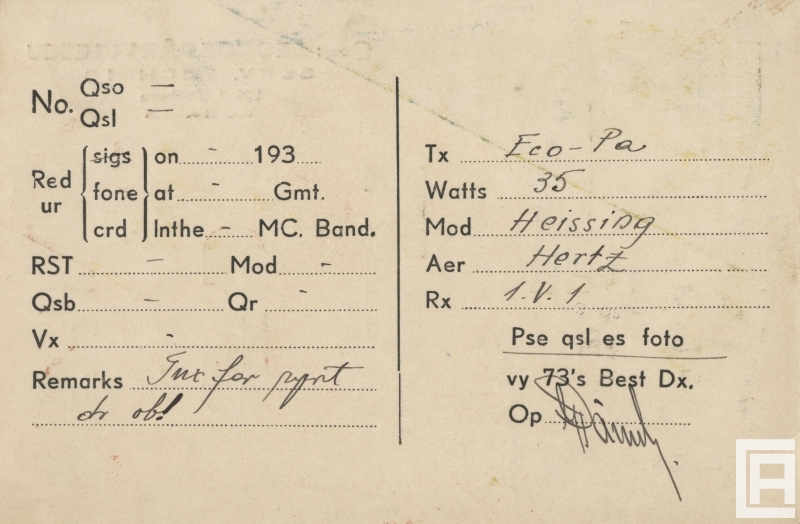 No. Qso —
Qsl —
Red ur { sigs fone crd } on - 193
at - Gmt.
Inthe - MC. Band.
RST - Mod -
Qsb - Qr -
Vx -
Remarks Tnx for rprt
dr ob!
Tx Eco-Pa
Watts 35
Mod Heissing
Aer Hertz
Rx 1.V.1
Pse qsl es foto
vy 73's Best Dx.
Op